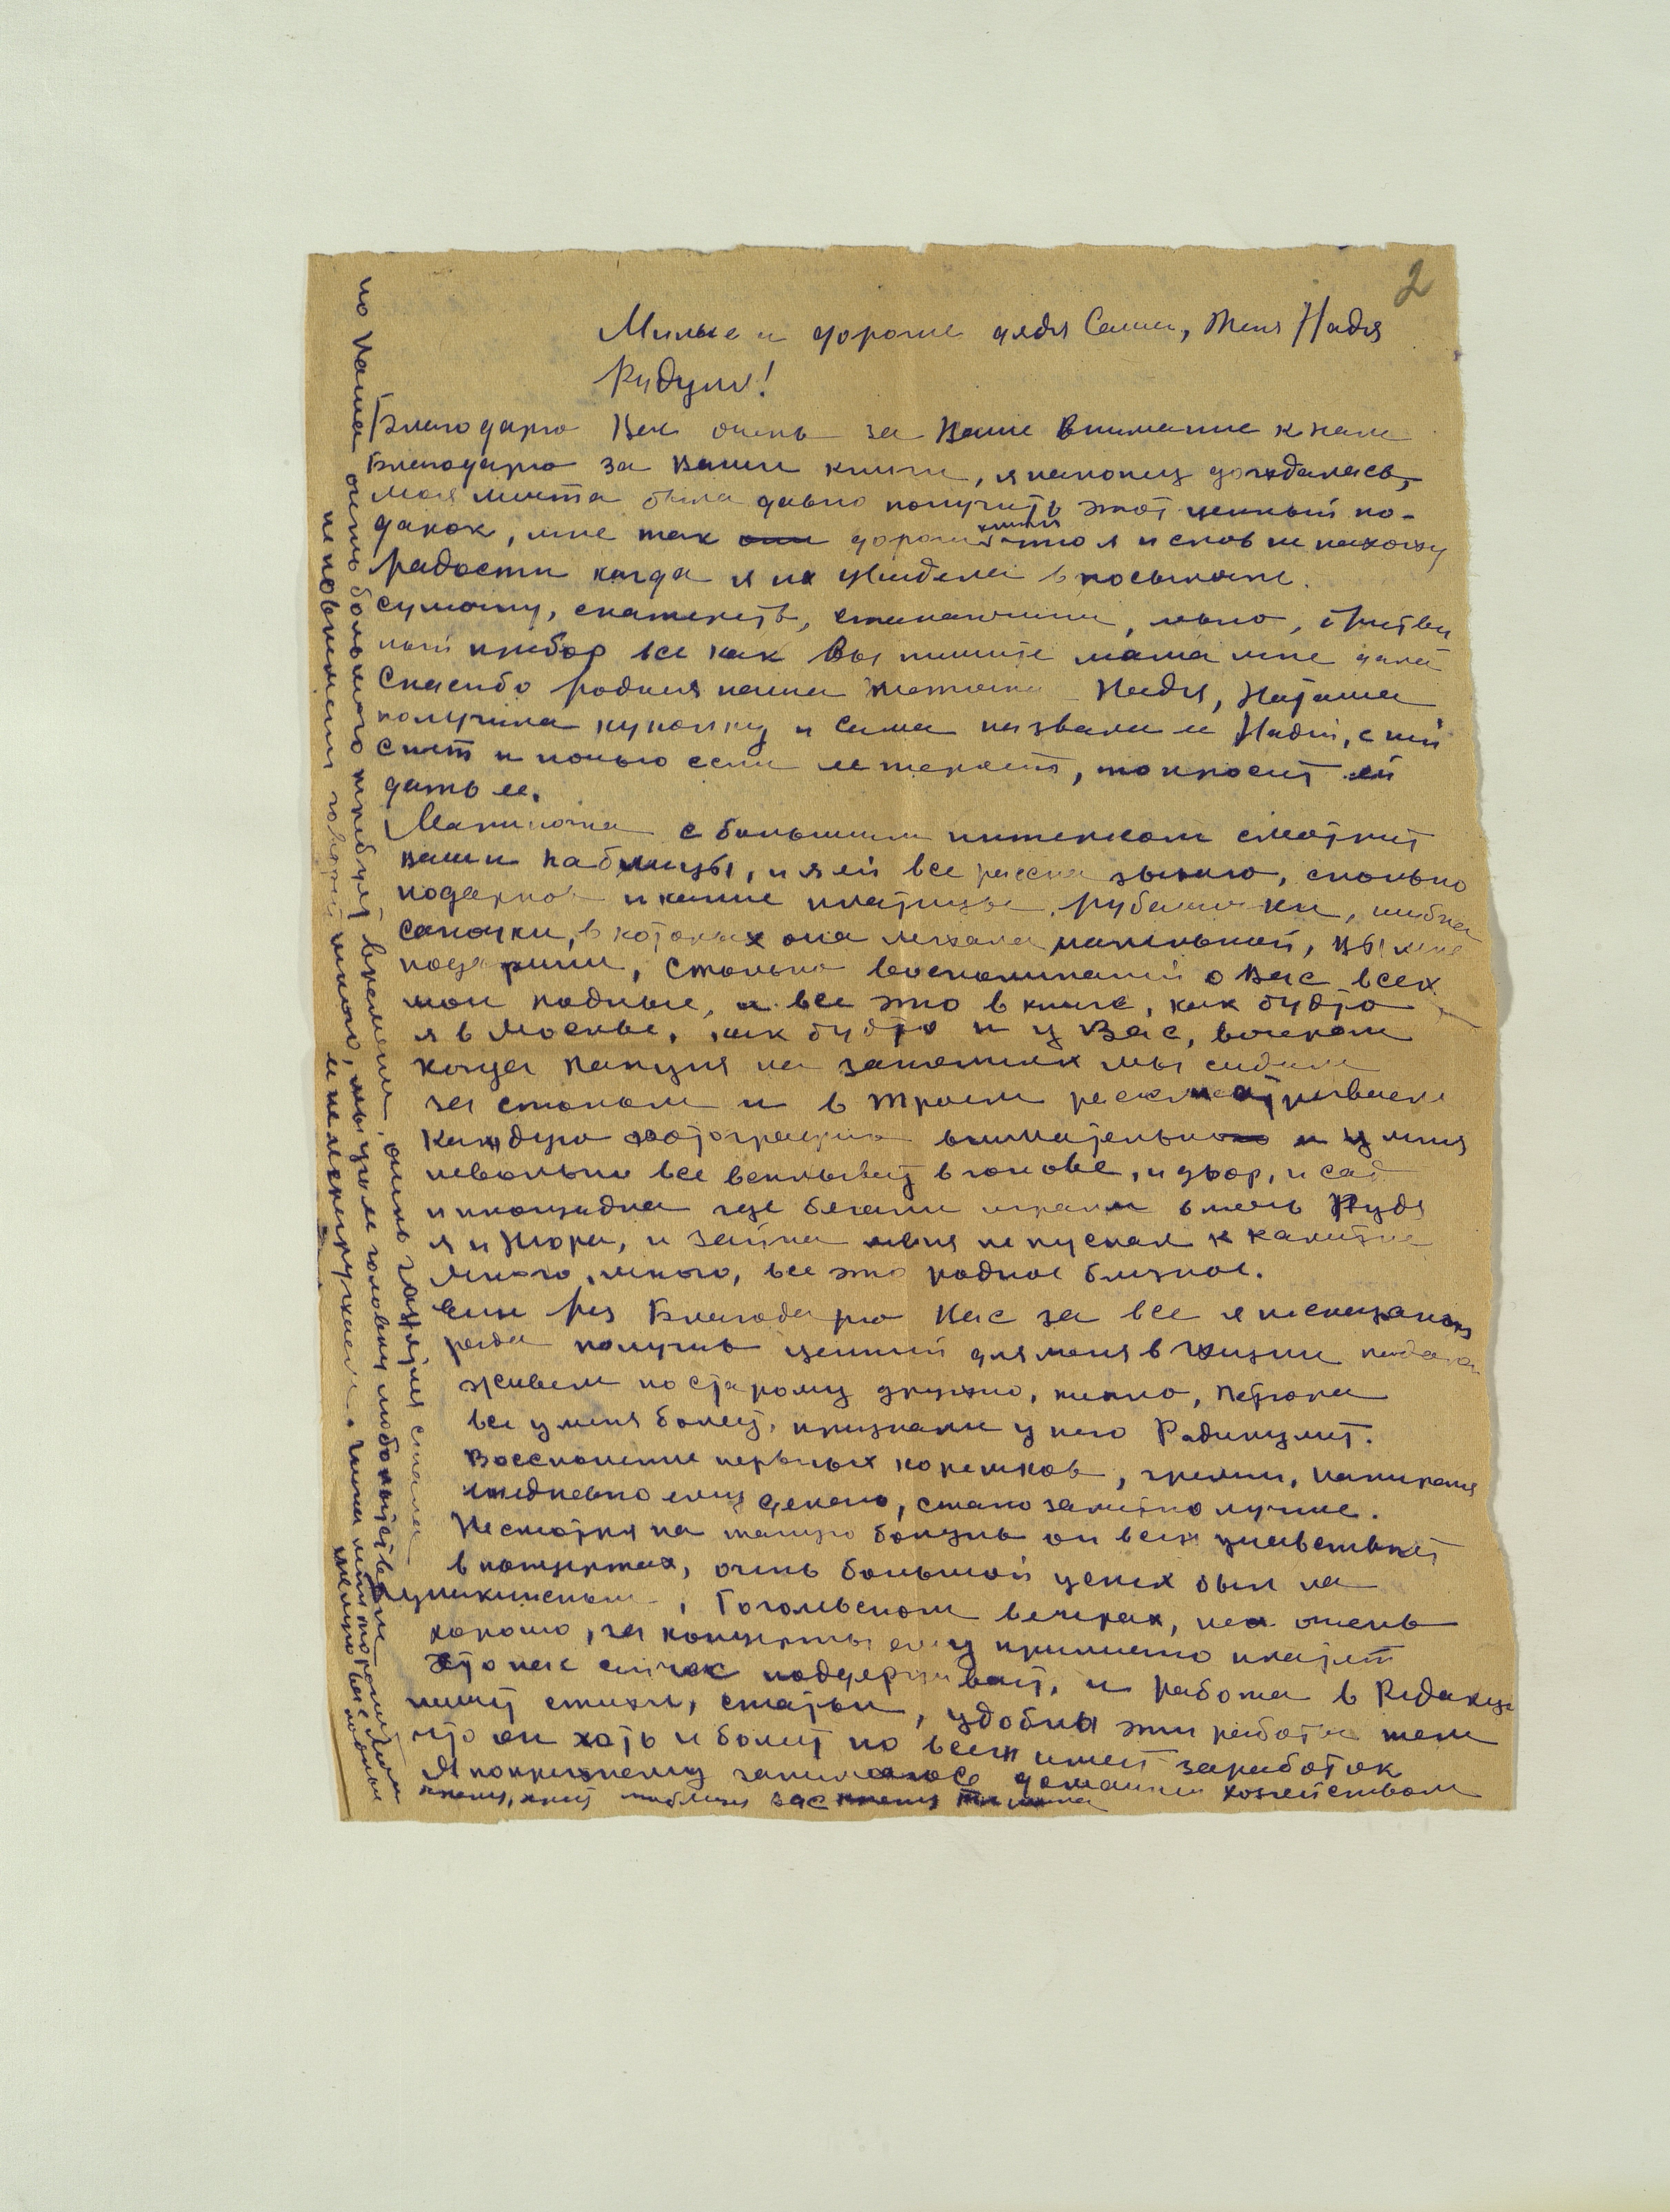 2
Милые и дорогие дядя Саша, тетя Надя
Рудули!
Благодарю Вас очень за Ваше внимание к нам
Благодарю за Ваши книги, я наконец дождалась,
моя мечта была давно получить этот ценный по-
дарок, мне так они дороги книги что я и слов не нахожу
радости когда я их увидела в посылке.
сумочку, скатерть, стаканчики, мыло, бритвен
ный прибор все как Вы пишите мама мне дала
Спасибо родная наша тетичка Надя, Наташа
получила куколку и сама назвала ее Надей, с ней
спит и ночью если ее теряет, то просит ей
дать ее.
Мариночка с большим интересом смотрит
ваши таблицы, и я ей все рассказываю, сколько
подарков и какие платица, рубашечки, шубка
сапочки, в которых она лежала маленькой, Вы мне
подарили, столько воспоминаний о Вас всех
мои родные, и все это в книге, как будто
я в Москве, как будто и у Вас, вечером
когда папуля на занятиях мы сидим
за столом и в троем рассматриваем
каждую фотографию внимательно и у меня
невольно все всплывает в голове, и двор, и сад
и площадка где бегали играли в мяч Рудя
я и Жора, и Зайка меня не пускал к калитке
много, много, все это родное близкое.
Еще раз Благодарю Вас за все я несказанно
рада получив ценный для меня в жизни подарок
живем по старому дружно, тихо, Петрока
все у меня болеет, признали у него Радикулит.
Воссполение нервных корешков, греем, натирание
ежедневно ему делаю, стало заметно лучше.
Несмотря на такую болезнь он всеж учавствует
в концертах, очень большой успех был на
Пушкинском, Гоголевском вечерах, чел очень
хорошо, за концерты ему прилично платят
Это нас сейчас поддерживает, и работа в Редакции
пишет стихи, статьи, удобны эти работы тем
что он хоть и болеет но всеж имеет заработок
Я попрежнему занимаюсь домашним хозяйством
но Наташа очень большого требует времени, очень занятая стала
не повременит говорит много, мы уном головку любопытством
ее не перегружаем.